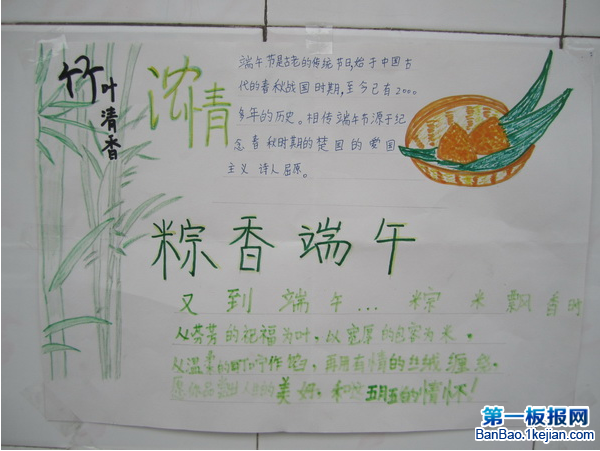 竹叶清香
浓情
端午节是古老的传统节日,始于中国古
代的春秋战国时期,至今已有2000
多年的历史。相传端午节源于纪
念春秋时期的楚国的爱国
主义诗人屈原。
粽香端午
又到端午...粽米飘香时
以芬芳的祝福为叶,以宽厚的包容为米,
以温柔的叮咛作馅,再用有情的丝绒缠绕,
愿你品的美好,和这五月五的情怀!
第一板报网
BanBao.1kejian.com